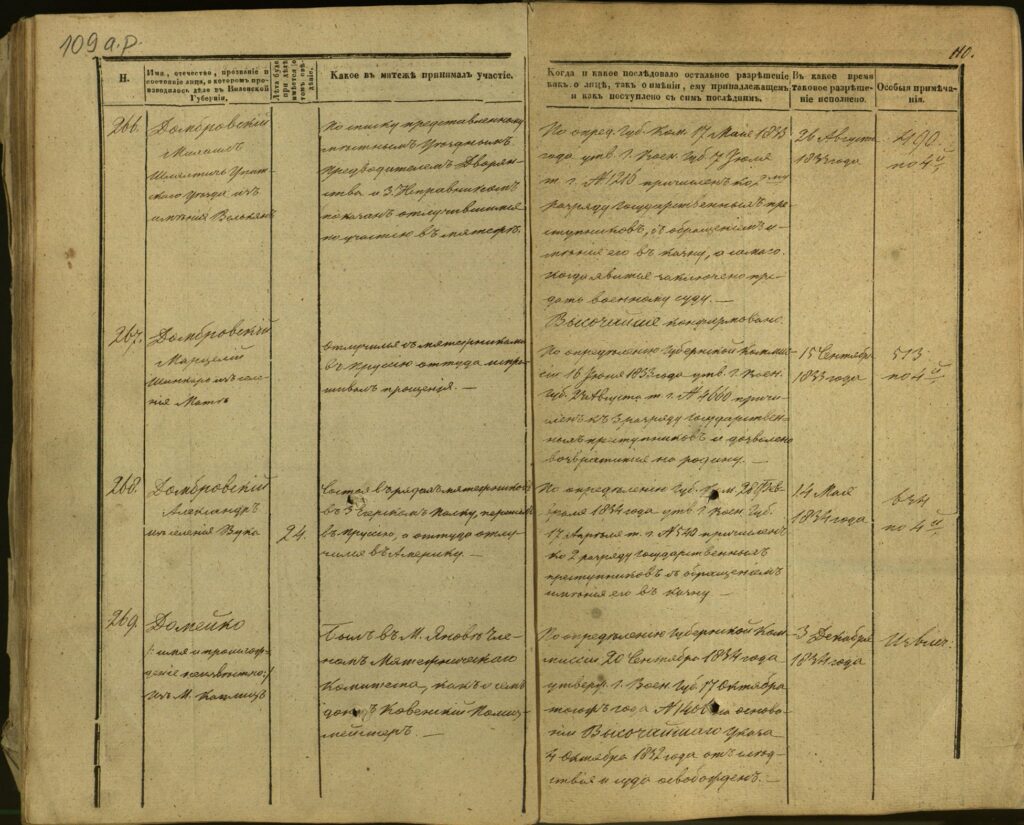 109 а.р.
110.
Н.
Имя, отечество, прозваніе и
состояніе лица, о которомъ про-
изводилось дѣло въ Виленской
Губерніи.
Лѣта буде
при дѣлѣ
имѣется о
томъ свѣ-
дѣніе.
Какое въ мятежѣ принималъ участіе.
Когда и какое послѣдовало остальное разрѣшеніе
какъ о лицѣ, такъ о имѣніи, ему принадлежащемъ
и какъ поступлено съ симъ послѣднимъ.
Въ какое время
таковое разрѣше-
ніе исполнено.
Особыя примѣча-
нія.
266.
Домбровскій
Шляхтичь
скаго Уѣзда изъ
имѣнія
По списку представленному
мѣстнымъ Уѣзднымъ
Предводителемъ Дворян-
ства и З. Исправникомъ
показанъ отлучившимся
по участію въ мятежѣ.
По опред. Губ. Ком. 17 Маія 1833
года утв. Г. Воен. Губ. 17 Іюля
т. г. № 1216 причисленъ ко 2му
разряду Государственныхъ пре-
ступниковъ, съ обращеніемъ и-
мѣнія его въ казну, а самаго
когда явится заключено пре-
дать военному суду. —
Высочайше конфирмовано.
26 Августа
1833 года
490.
по 4й
267.
Домбровскій
Марцелій
изъ селе-
нія
отлучился съ мятежниками
въ Пруссію оттуда испра-
шивалъ прощенія. —
По опредѣленію Губернской Коммис-
сіи 16 Іюля 1833 года утв. Г. Воен.
Губ. 23 Августа т. г. № 4660 причи-
сленъ къ 3 разряду Государствен-
ныхъ преступниковъ и дозволено
возвратиться на родину. —
15 Сентября
1833 года
513
по 4й
268.
Домбровскій
Александръ
изъ селенія Вука
24.
Состоя въ рядахъ мятежниковъ
въ 3 Егерскомъ Полку, перешелъ
въ Пруссію, а оттуда отлу-
чился въ Америку. —
По опредѣленію Губ. Ком. 28 Фев-
раля 1834 года утв. Г. Воен. Губ.
17 Апрѣля т. г. № 540 причисленъ
ко 2 разряду Государственныхъ
преступниковъ съ обращеніемъ
имѣнія его въ казну. —
14 Мая
1834 года
по 4й
269.
Домейко
/: имя и происхож-
деніе неизвѣстно :/
изъ М.
Былъ въ М. Яновѣ Чле-
номъ Мятежническаго
Комитета, какъ о семъ
Ковенскій Полиц-
мейстеръ. —
По опредѣленію Губернской Ком-
миссіи 20 Сентября 1834 года
утверж. Г. Воен. Губ. 17 Октября
тогожъ года на основа-
ніи Высочайшаго Указа
4 Октября 1832 года отъ слѣд-
ствія и суда освобожденъ. —
3 Декабря
1834 года
Извлеч.